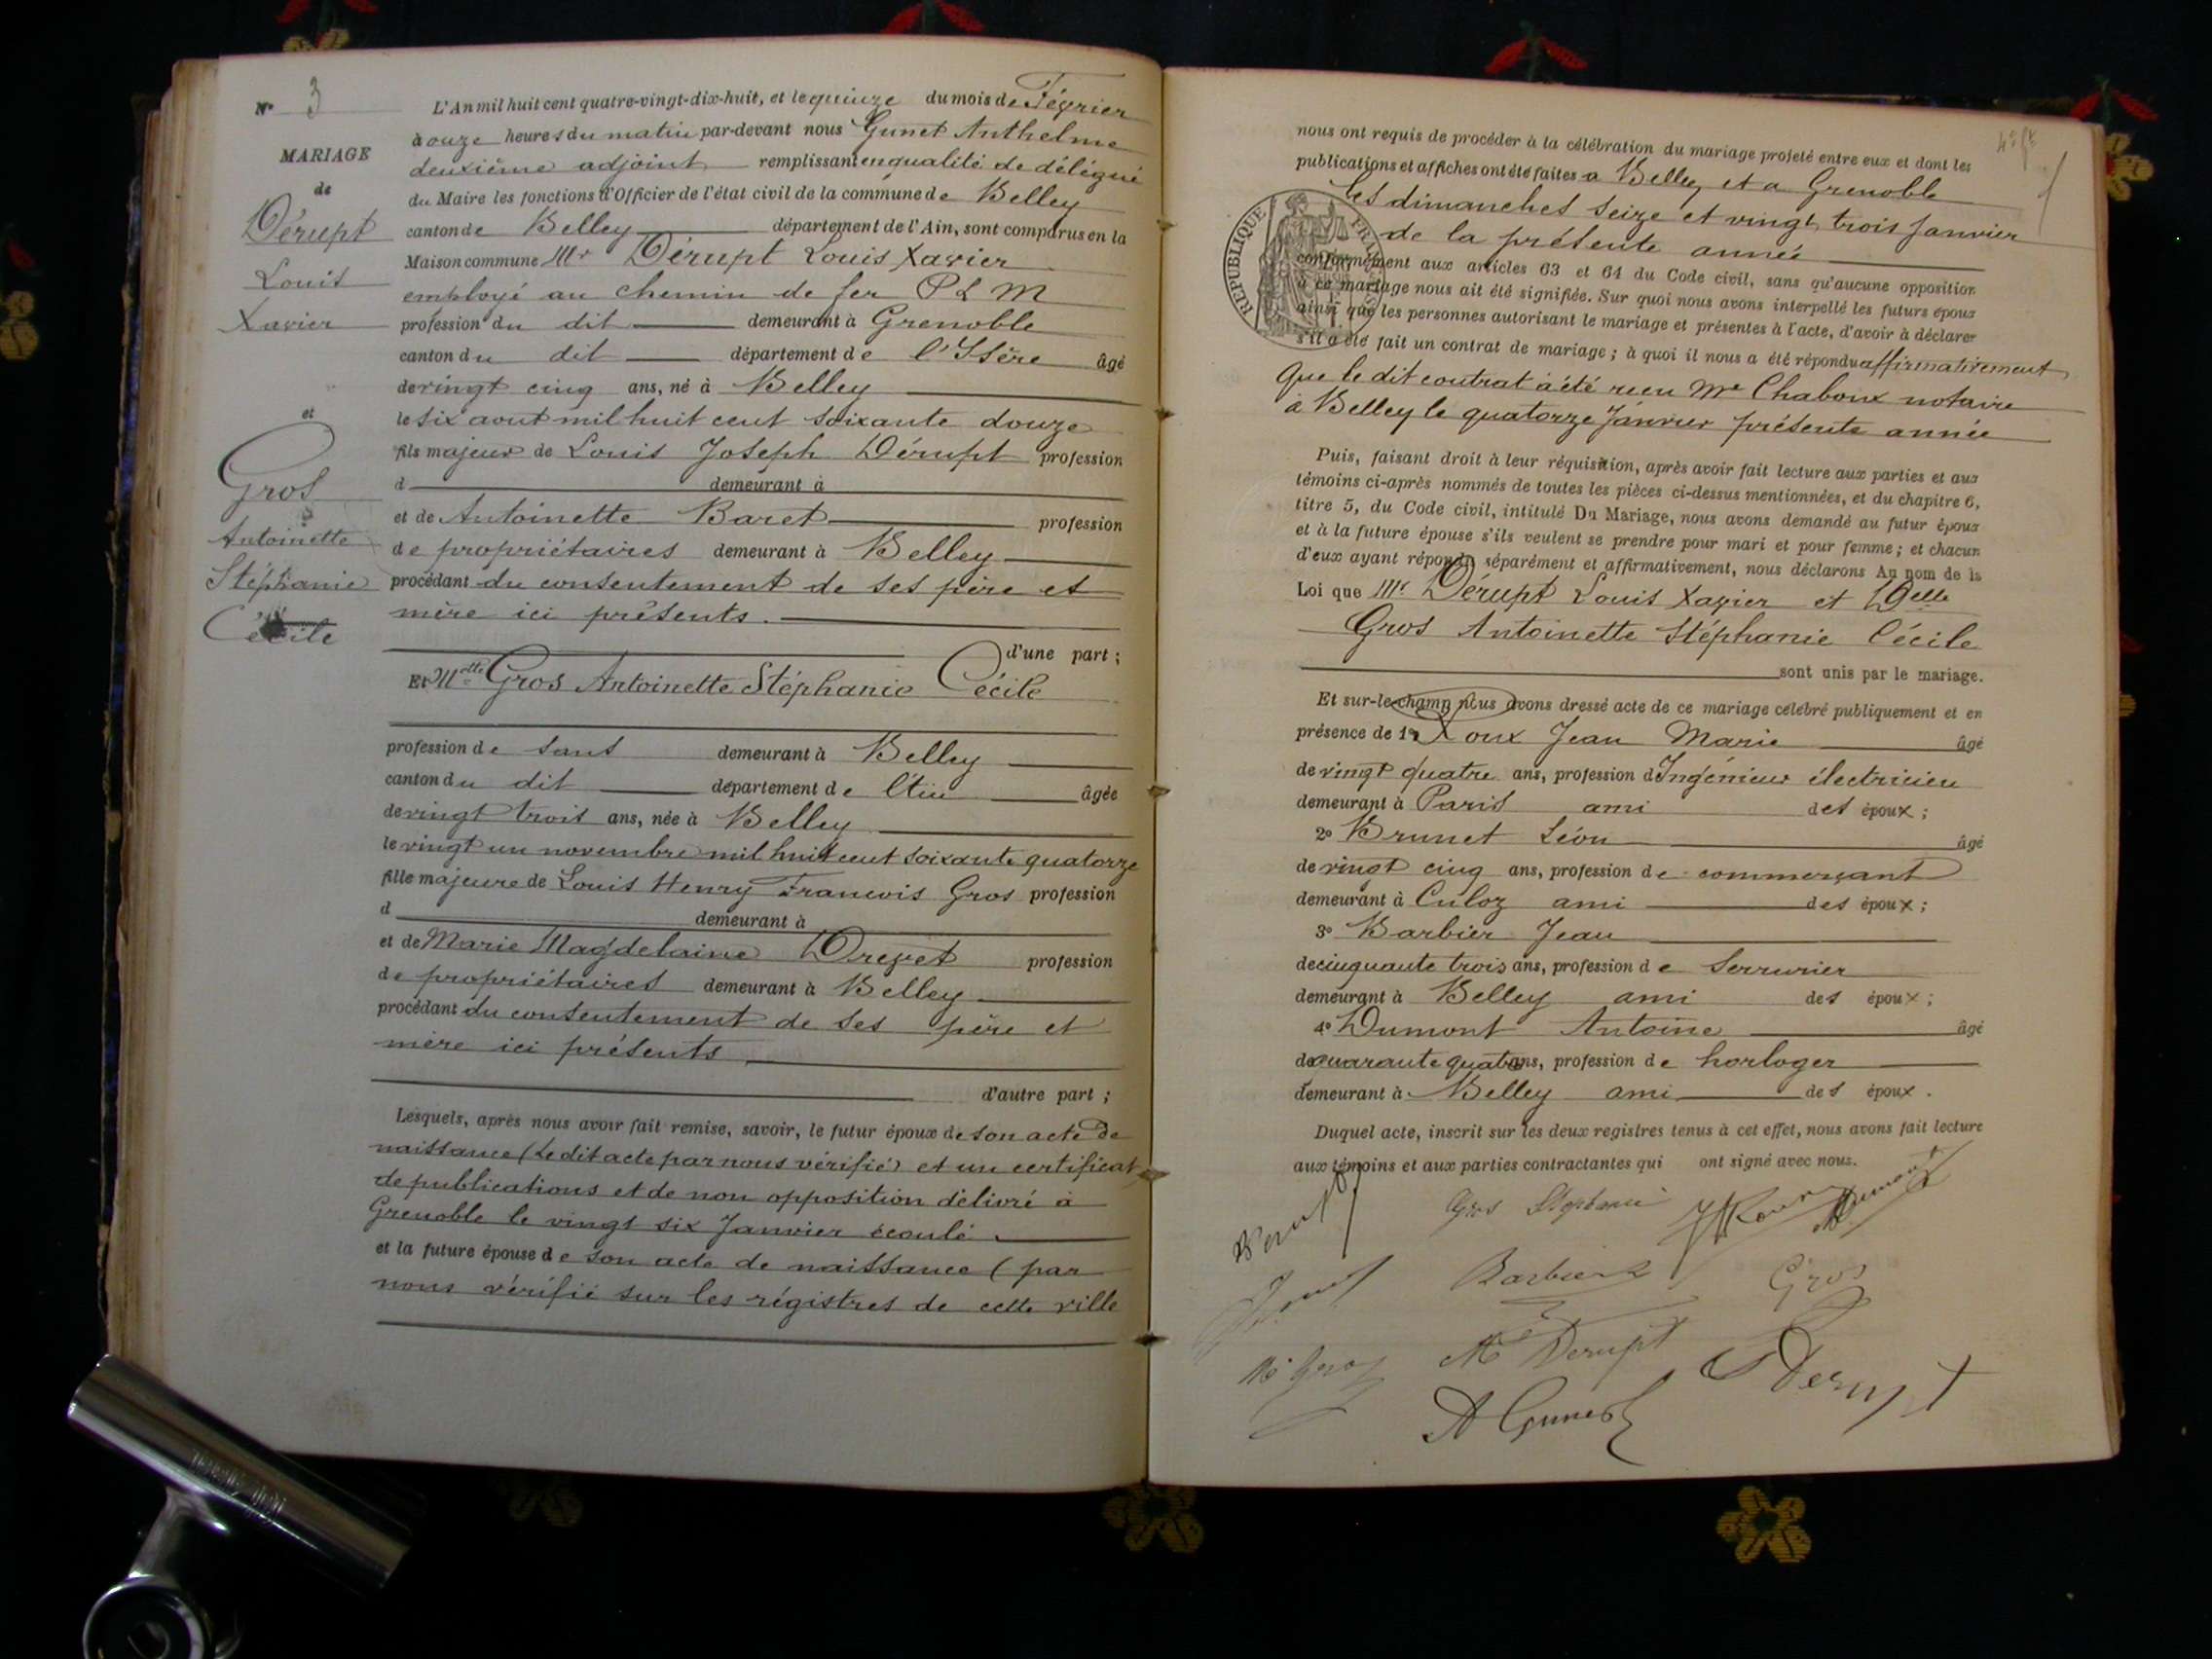 N° 3
MARIAGE
de
Dérupt
Louis
Xavier
et
Gros
Antoinette
Stéphanie
Cécile
L'An mil huit cent quatre-vingt-dix-huit, et le quinze du mois de Février
à onze heures du matin par-devant nous Gunet Anthelme
deuxième adjoint remplissant en qualité de délégué
du Maire les fonctions d'Officier de l'état civil de la commune de Belley
canton de Belley département de l'Ain, sont comparus en la
Maison commune Mr Dérupt Louis Xavier
employé au chemin de fer P L M
profession du dit demeurant à Grenoble
canton du dit département de l'Isère âgé
de vingt cinq ans, né à Belley
le six aout mil huit cent soixante douze
fils majeur de Louis Joseph Dérupt profession
d demeurant à
et de Antoinette Baret profession
de propriétaires demeurant à Belley
procédant du consentement de ses père et
mère ici présents.
d'une part ;
Et Melle Gros Antoinette Stéphanie Cécile
profession de sans demeurant à Belley
canton du dit département de l'Ain âgée
de vingt trois ans, née à Belley
le vingt un novembre mil huit cent soixante quatorze
fille majeure de Louis Henry Francois Gros profession
d demeurant à
et de Marie Magdelaine Drevet profession
de propriétaires demeurant à Belley
procédant du consentement de ses père et
mère ici présents
d'autre part ;
Lesquels, après nous avoir fait remise, savoir, le futur époux de son acte de
naissance (Le dit acte par nous vérifié) et un certificat
de publications et de non opposition délivré à
Grenoble le vingt six Janvier écoulé
et la future épouse de son acte de naissance (par
nous vérifié sur les régistres de cette ville
nous ont requis de procéder à la célébration du mariage projeté entre eux et dont les
publications et affiches ont été faites a Belley et a Grenoble
les dimanches seize et vingt trois Janvier
de la présente année
conformément aux articles 63 et 64 du Code civil, sans qu'aucune opposition
à ce mariage nous ait été signifiée. Sur quoi nous avons interpellé les futurs époux
ainsi que les personnes autorisant le mariage et présentes à l'acte, d'avoir à déclarer
s'il a été fait un contrat de mariage ; à quoi il nous a été répondu affirmativement
Que le dit contrat a été recu Me Chaboux notaire
à Belley le quatorze Janvier présente année
RÉPUBLIQUE
Puis, faisant droit à leur réquisition, après avoir fait lecture aux parties et aux
témoins ci-après nommés de toutes les pièces ci-dessus mentionnées, et du chapitre 6,
titre 5, du Code civil, intitulé Du Mariage, nous avons demandé au futur époux
et à la future épouse s'ils veulent se prendre pour mari et pour femme ; et chacun
d'eux ayant répondu séparément et affirmativement, nous déclarons Au nom de la
Loi que Mr Dérupt Louis Xavier et Delle
Gros Antoinette Stéphanie Cécile
sont unis par le mariage.
Et sur-le-champ nous avons dressé acte de ce mariage célébré publiquement et en
présence de 1° Roux Jean Marie âgé
de vingt quatre ans, profession d'Ingénieur électricien
demeurant à Paris ami des époux ;
2° Brunet Léon âgé
de vingt cinq ans, profession de commerçant
demeurant à Culoz ami des époux ;
3° Barbier Jean
de cinquante trois ans, profession de Serrurier
demeurant à Belley ami des époux ;
4° Dumont Antoine âgé
de quarante quatre ans, profession de horloger
demeurant à Belley ami des époux .
Duquel acte, inscrit sur les deux registres tenus à cet effet, nous avons fait lecture
aux témoins et aux parties contractantes qui ont signé avec nous.
Gros Stéphanie JRoux Dumont
Barbier Gros
Dérupt
A Gunet Derupt